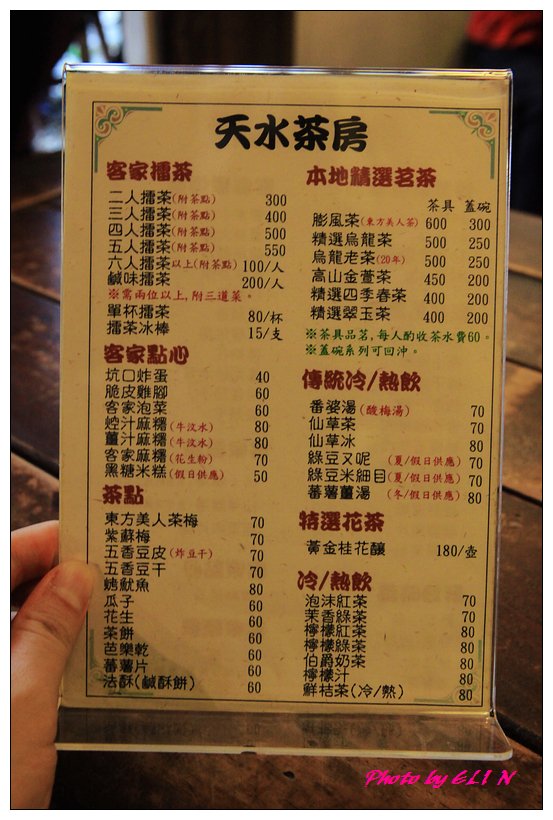 天水茶房
客家擂茶
二人擂茶(附茶點) 300
三人擂茶(附茶點) 400
四人擂茶(附茶點) 500
五人擂茶(附茶點) 550
六人擂茶以上(附茶點) 100/人
鹹味擂茶 200/人
※需兩位以上,附三道菜。
單杯擂茶 80/杯
擂茶冰棒 15/支
客家點心
坑口炸蛋 40
脆皮雞腳 60
客家泡菜 60
焢汁麻糬(牛汶水) 80
薑汁麻糬(牛汶水) 80
客家麻糬(花生粉) 70
黑糖米糕(假日供應) 50
茶點
東方美人茶梅 70
紫蘇梅 70
五香豆皮(炸豆干) 70
五香豆干 70
魷魚 80
瓜子 60
花生 60
茶餅 60
芭樂乾 60
蕃薯片 60
法酥(鹹酥餅) 60
本地精選茗茶
茶具 蓋碗
膨風茶(東方美人茶) 600 300
精選烏龍茶 500 250
烏龍老茶(20年) 500 250
高山金萱茶 450 200
精選四季春茶 400 200
精選翠玉茶 400 200
※茶具品茗,每人酌收茶水費60。
※蓋碗系列可回沖。
傳統冷/熱飲
番婆湯(酸梅湯) 70
仙草茶 70
仙草冰 80
綠豆又呢 (夏/假日供應) 70
綠豆米細目(夏/假日供應) 70
蕃薯薑湯 (冬/假日供應) 80
特選花茶
黃金桂花釀 180/壺
冷/熱飲
泡沫紅茶 70
茉香綠茶 70
檸檬紅茶 80
檸檬綠茶 80
伯爵奶茶 80
檸檬汁 80
鮮桔茶(冷/熱) 80
Photo by ELI N